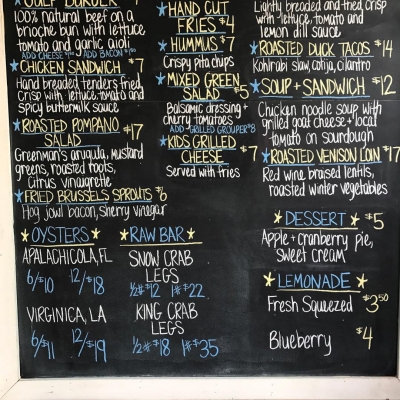 GULF BURGER
100% natural beef on a
brioche bun with lettuce
tomato and garlic aioli
ADD CHEESE ADD BACON
★CHICKEN SANDWICH $7
Hand breaded tenders fried,
crisp with lettuce tomato and
spicy buttermilk sauce
★ROASTED POMPANO $17
SALAD
Greenman's arugula, mustard
greens, roasted roots,
Citrus vinaigrette
★FRIED BRUSSELS SPROUTS $6
Hog jowl bacon, sherry vinegar
★OYSTERS★
APALACHICOLA, FL
6/$10 12/$18
VIRGINICA, LA
6/$11 12/$19
★HAND CUT
FRIES $4
★HUMMUS $7
Crispy pita chips
★MIXED GREEN
SALAD $5
Balsamic dressing +
cherry tomatoes
ADD GRILLED GROUPER $8
★KIDS GRILLED
CHEESE $7
Served with fries
★RAW BAR★
SNOW CRAB
LEGS
1/2# $12 1# $22
KING CRAB
LEGS
1/2# $18 1# $35
Lightly breaded and fried crisp
with lettuce, tomato and
lemon dill sauce
★ROASTED DUCK TACOS $14
Kohlrabi slaw, cotija, cilantro
★SOUP + SANDWICH $12
Chicken noodle soup with
grilled goat cheese + local
tomato on sourdough
★ROASTED VENISON LOIN $17
Red wine braised lentils,
roasted winter vegetables
★DESSERT★ $5
Apple + cranberry pie,
sweet cream
★LEMONADE★
Fresh Squeezed $3.50
Blueberry $4